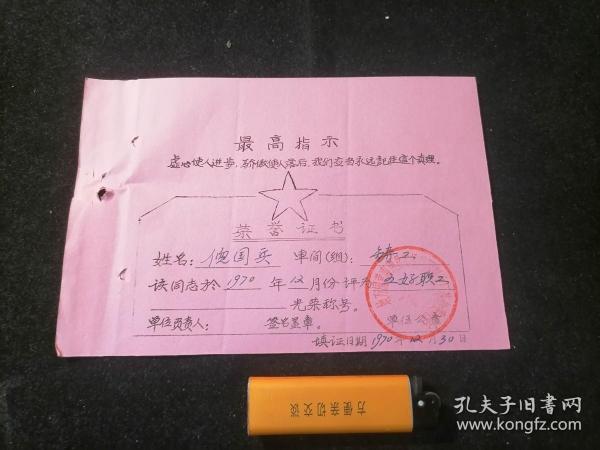 最高指示
虚心使人进步，骄傲使人落后，我们应当永远記住這个真理。
荣誉证书
姓名： 国兵 車间(组): 铸工
该同志於1970年12月份评为五好职工
光荣称号。
單位负责人： 签名盖章。 單位公章
填证日期1970年12月30日
方便亲切交谈
孔夫子旧书网
www.kongfz.com